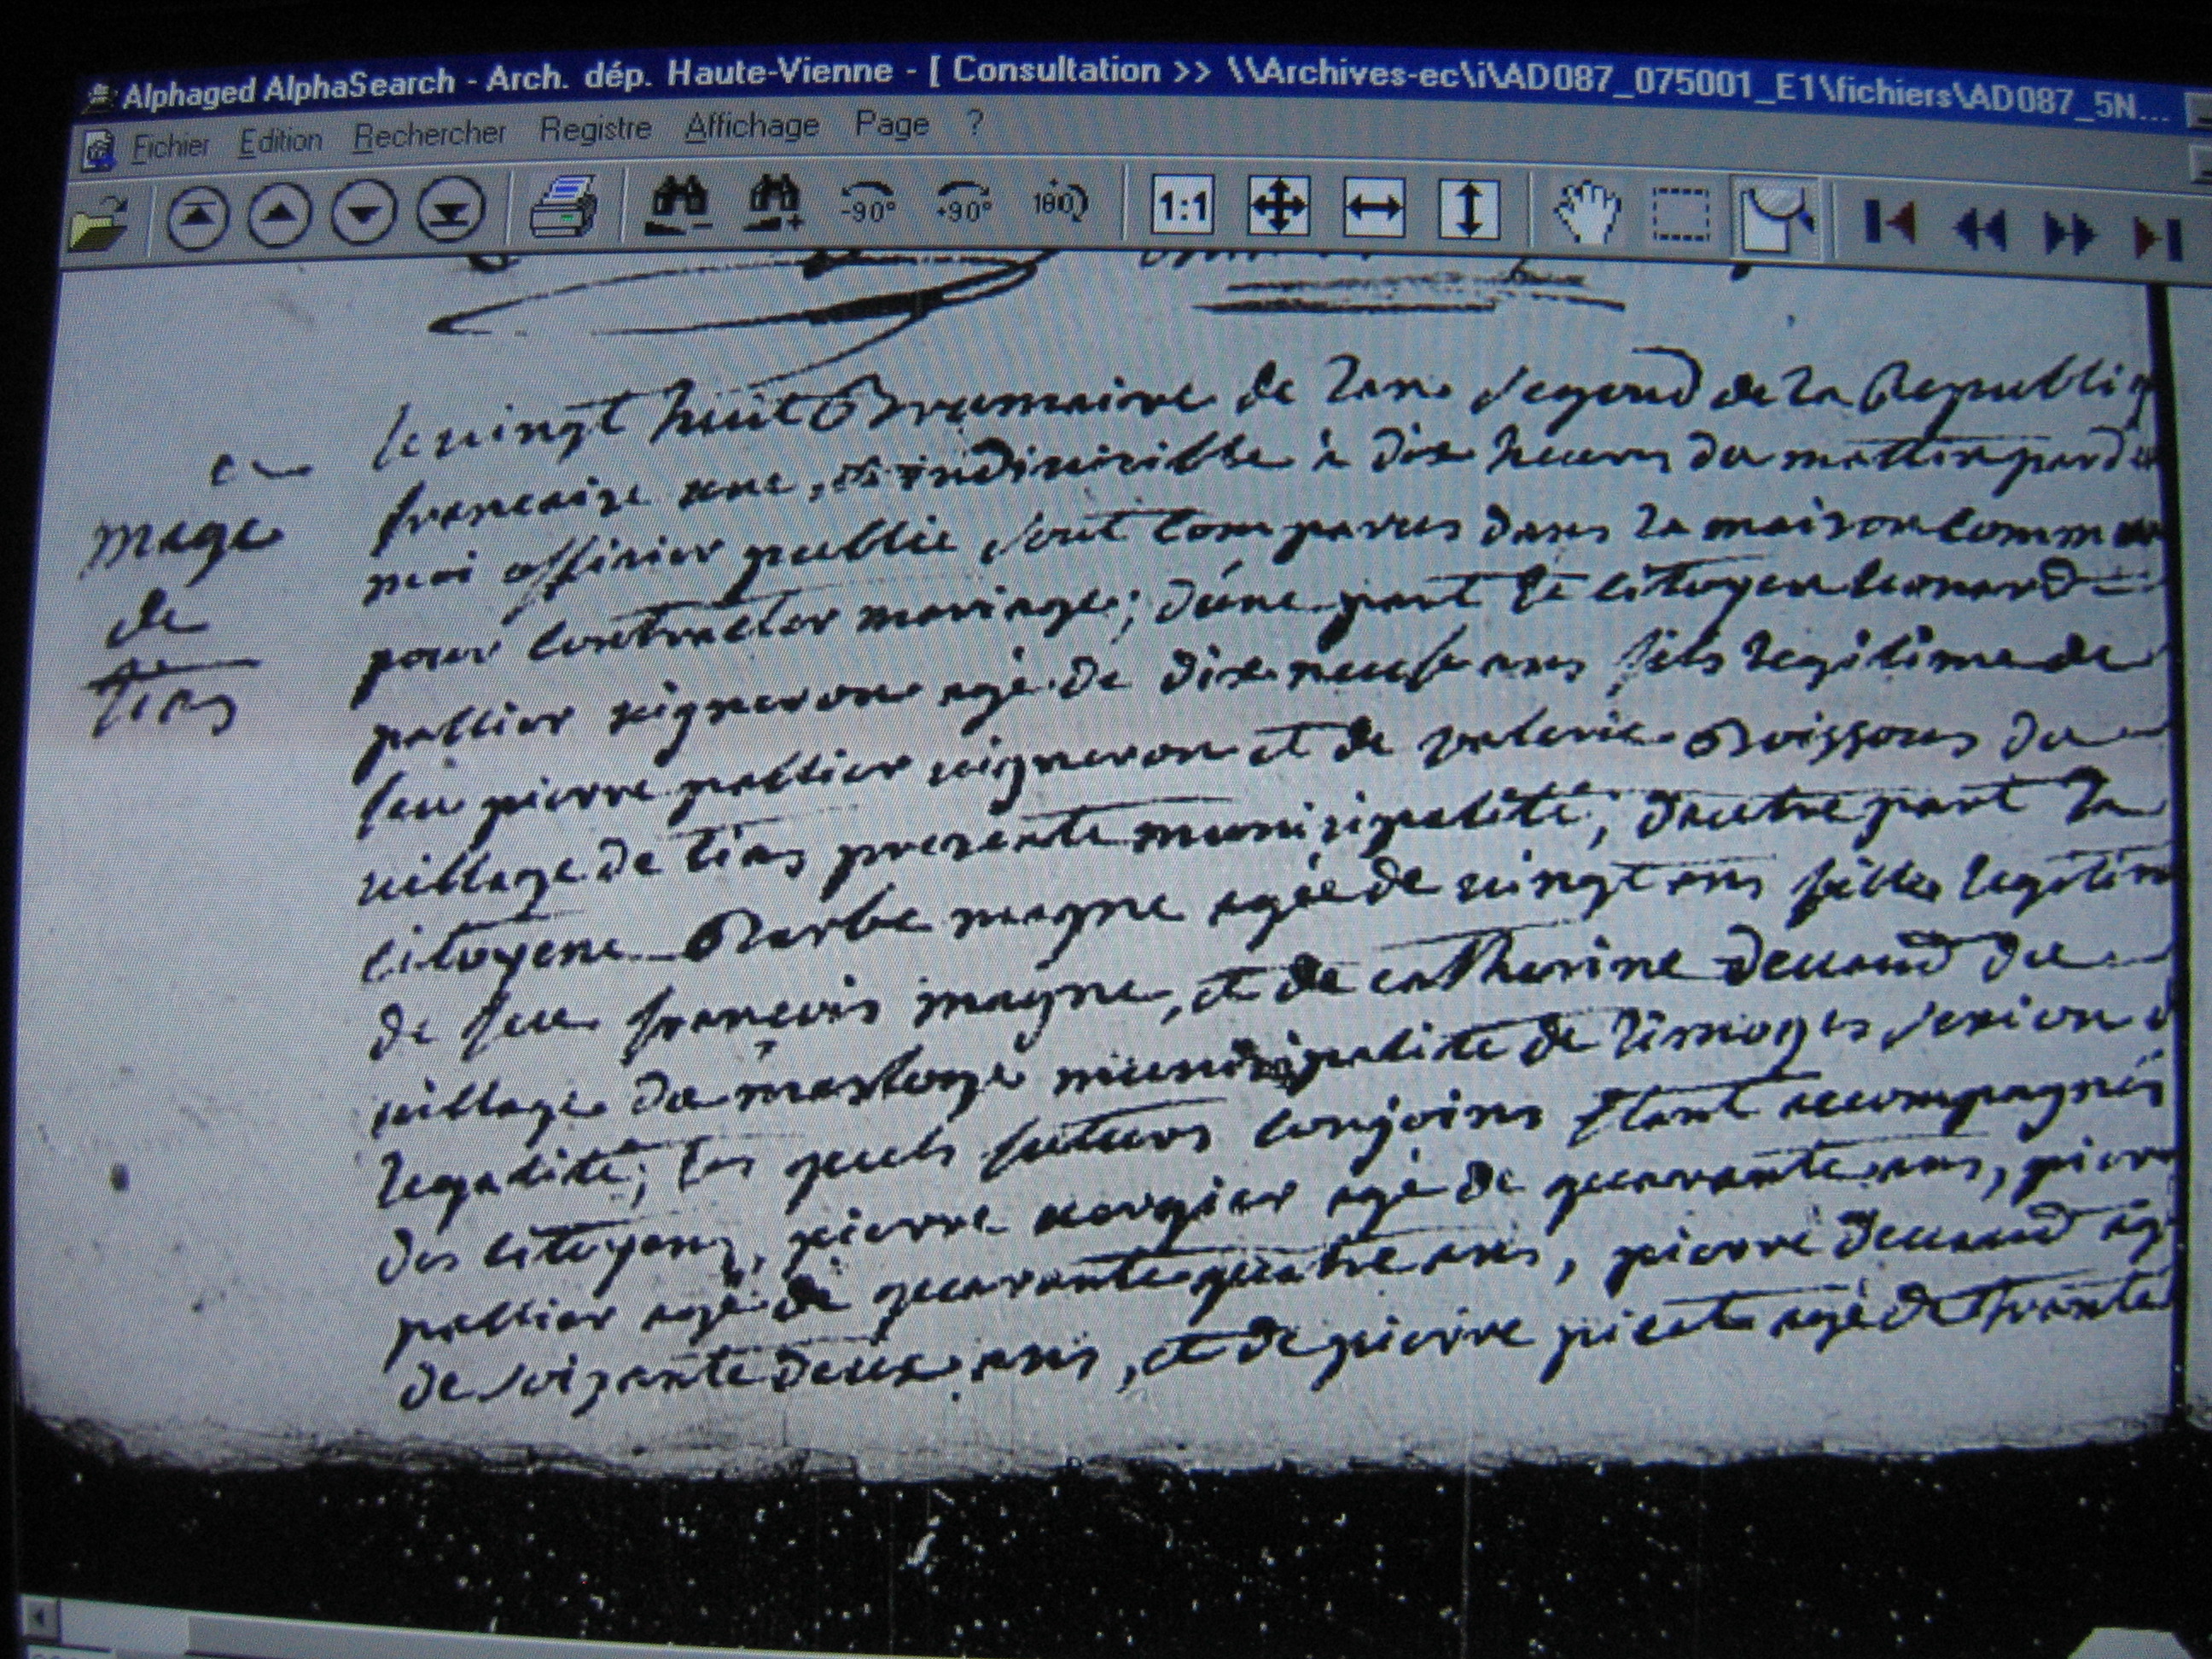 Alphaged AlphaSearch - Arch. dép. Haute-Vienne - [ Consultation >> \\Archives-ec\i\AD087_075001_E1\fichiers\AD087_5N...
Fichier Edition Rechercher Registre Affichage Page ?
-90° +90° 180 1:1
mage
de
tias
le vingt huit Brumaire de lan segond de la Republiq
francaise une, et indivisible à dix heures du mattin pard
moi officier public sont comparus dans la maison comm
pour contracter mariage; dúne part le citoyen leonard
pallier vigneron agé de dix neuf ans fils legitime de
feu pierre pallier vigneron et de valerie Boissous du
village de tias presente municipalité; dautre part la
citoyene Barbe magne agée de vingt ans fille legitim
de feu francois magne, et de catherine devaud du
village du masloge municipalité de limoges sexion d
legalité; les quels futurs conjoins étant accompagnés
des citoyens, pierre vergier agé de quarante ans, pierr
pallier agé de quarante quatre ans, pierre devaud ag
de soizante deux ans, et de pierre picat agé de trante